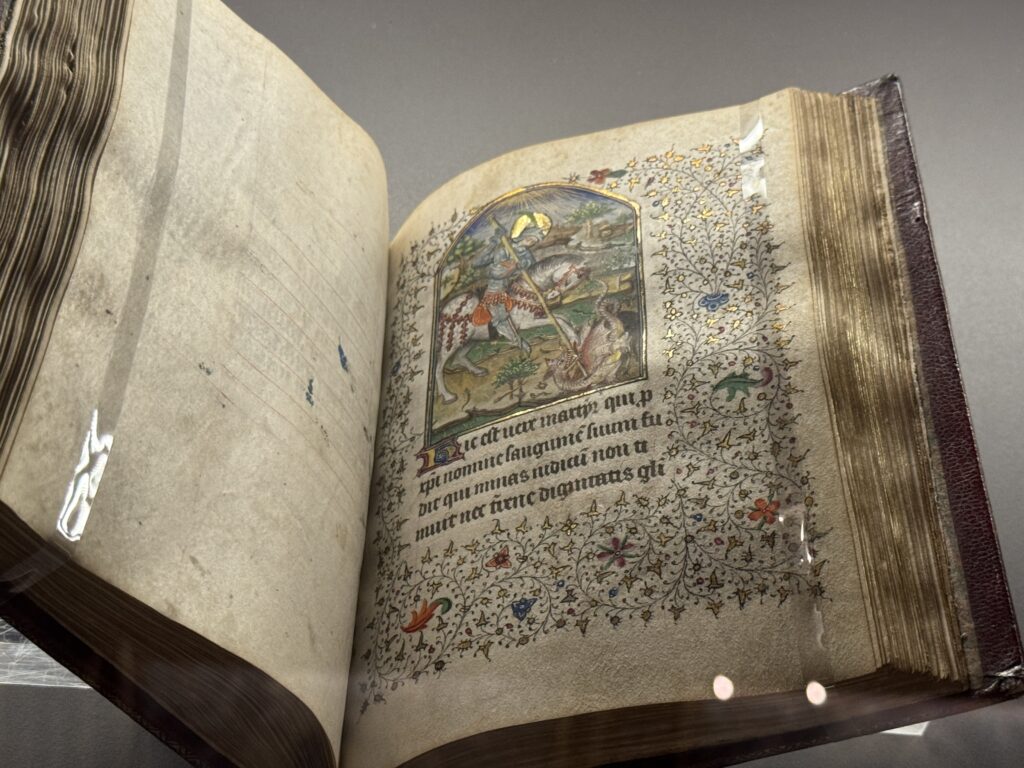 Hic est uere martyr qui p
xpi nomine sanguinē suum fu
dit qui minas iudicū non ti
muit nec t̄rene dignitatis gli